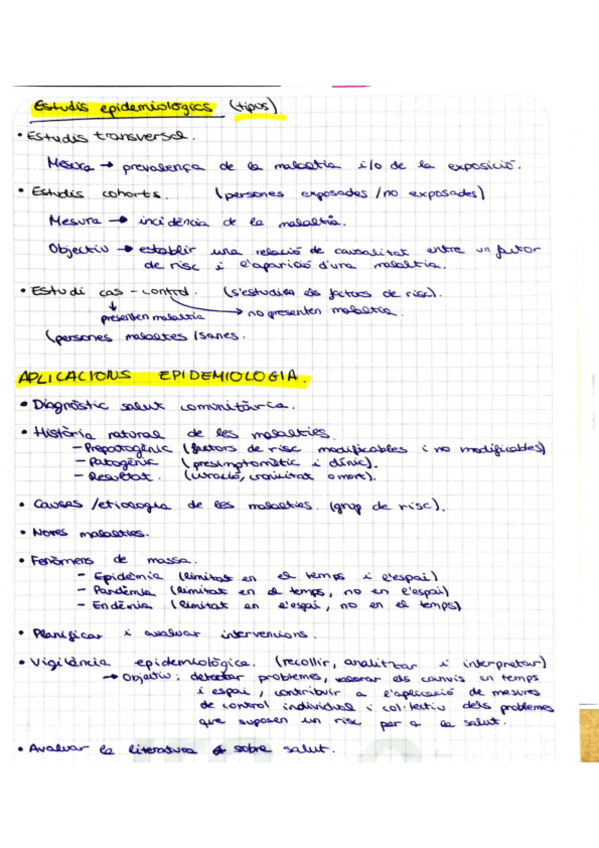 Estudis epidemiològics (tipus)
• Estudis transversal.
Mesura → prevalença de la malaltia i/o de la exposició.
• Estudis cohorts. (persones exposades / no exposades)
Mesura → incidència de la malaltia.
Objectiu → establir una relació de causalitat entre un factor
de risc i l'aparició d'una malaltia.
• Estudi cas - control. (s'estudien els factors de risc).
presenten malaltia → no presenten malaltia.
(persones malaltes / sanes.
APLICACIONS EPIDEMIOLOGIA.
• Diagnòstic salut comunitària.
• Història natural de les malalties.
- Prepatogènic (factors de risc modificables i no modificables)
- Patogènic (presimptomàtic i clínic).
- Resultat. (curació, cronicitat o mort).
• Causes /etiologia de les malalties. (grup de risc).
• Noves malalties.
• Fenòmens de massa.
- Epidèmia (limitat en el temps i l'espai)
- Pandèmia (limitat en el temps, no en l'espai)
- Endèmia (limitat en l'espai, no en el temps)
• Planificar i avaluar intervencions.
• Vigilància epidemiològica. (recollir, analitzar i interpretar)
→ Objectiu: detectar problemes, valorar els canvis en temps
i espai, contribuir a l'aplicació de mesures
de control individual i col·lectiu dels problemes
que suposen un risc per a la salut.
• Avaluar la literatura sobre salut.